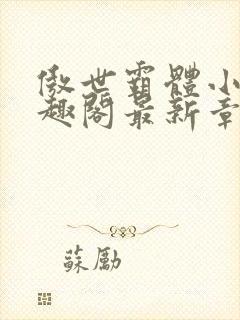 傲世霸體小
趣閣最新章
蘇勵